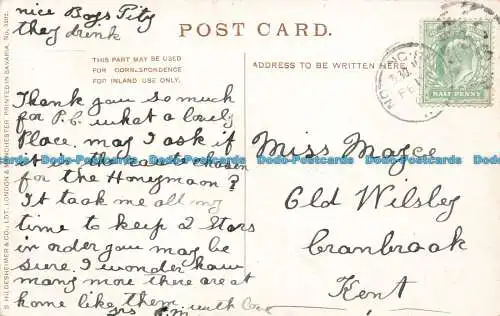 nice Boys Pity
they drink
POST CARD.
THIS PART MAY BE USED
FOR CORRESPONDENCE
FOR INLAND USE ONLY.
ADDRESS TO BE WRITTEN HERE
HALF PENNY
Thank you so much
for P.C. what a lovely
Place. may I ask if
it is the place chosen
for the Honeymoon?
It took me all my
time to keep 2 Stars
in order you may be
sure. I wonder how
many more there are at
home like them
with love
Miss Mayce
Old Wilsley
Cranbrook
Kent
S. HILDESHEIMER & CO., LDT. LONDON & MANCHESTER PRINTED IN BAVARIA. No.
Bdo-Postcards Bdo-Postcards Bdo-Postcards Bdo-Postcards Bdo-Postcards